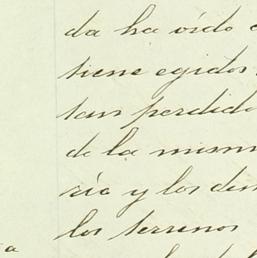 da ha oído
tiene egidos
tan perdido
de la mism
río y los dem
los terrenos
a